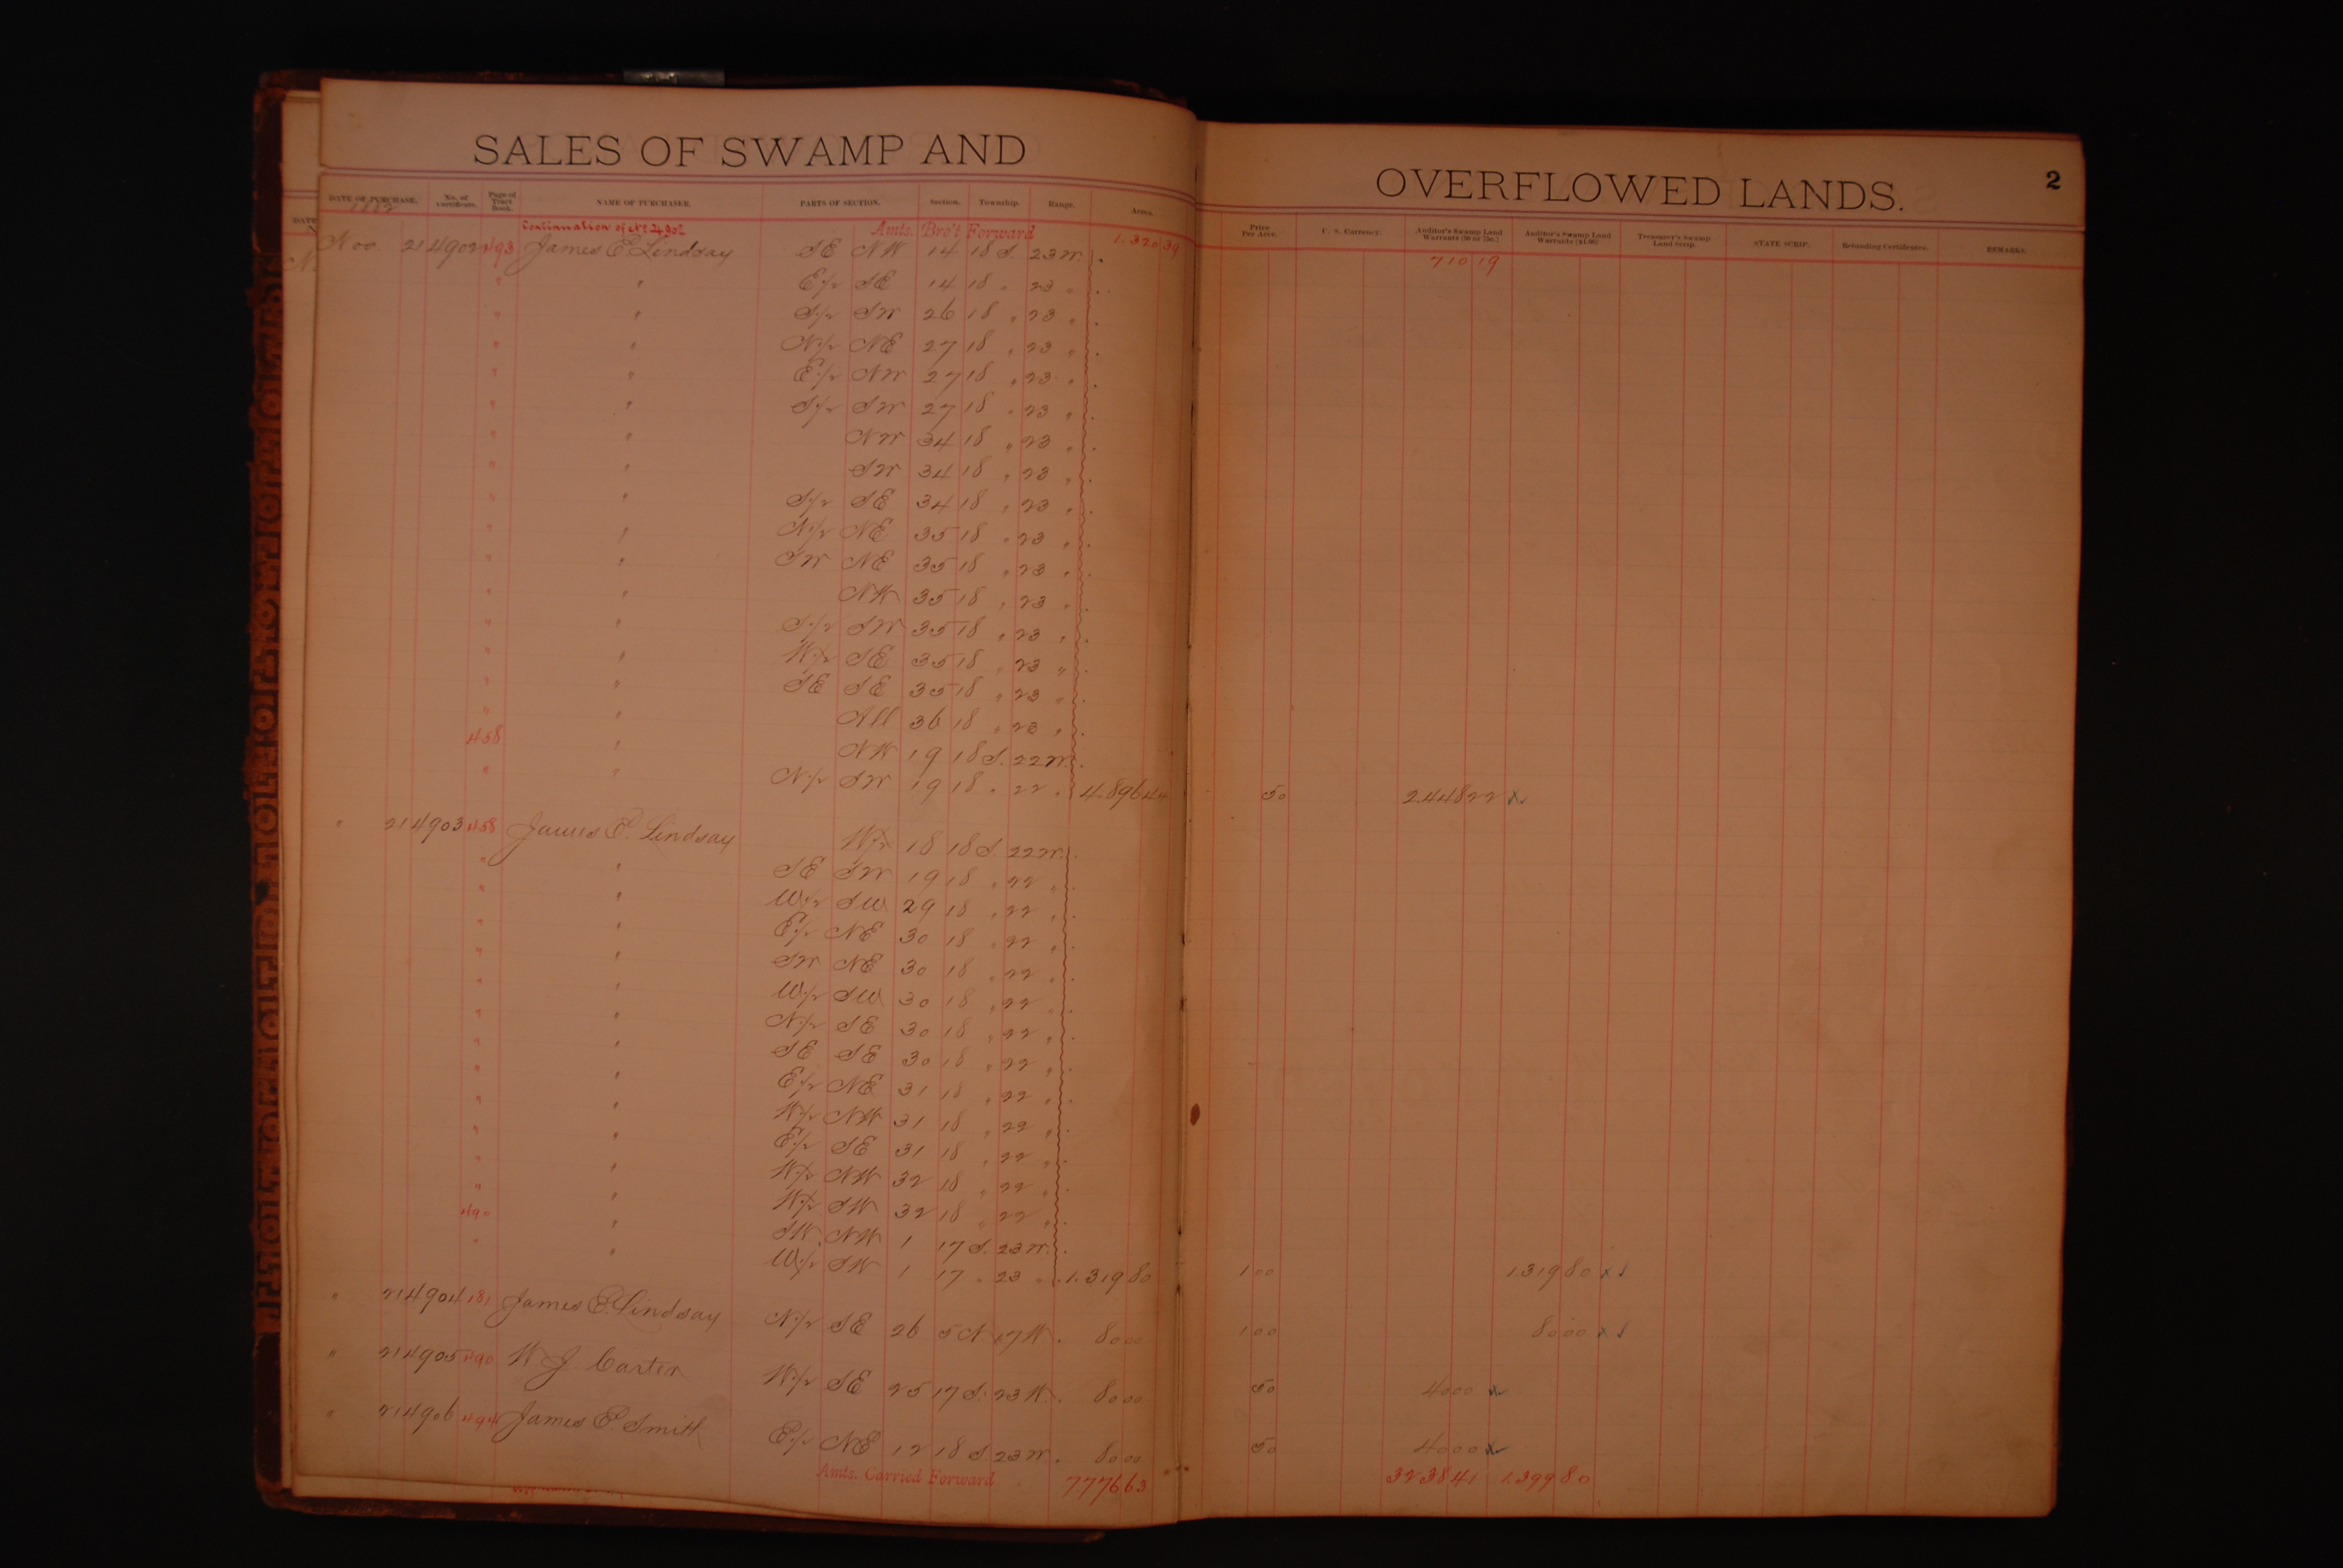 SALES OF SWAMP AND OVERFLOWED LANDS. 2
DATE OF PURCHASE. No. of Certificate. Page of Tract Book. NAME OF PURCHASER. PARTS OF SECTION. Section. Township. Range. Acres. Price Per Acre. U. S. Currency. Auditor's Swamp Land Warrants (50 or 75c.) Auditor's Swamp Land Warrants ($1.00) Treasurer's Swamp Land Scrip. STATE SCRIP. Refunding Certificates. REMARKS.
Continuation of No 4902 Amts. Bro't Forward 1.320 39 710 19
Nov. 21 4902 493 James E. Lindsay SE NW 14 18 S. 23 W.
" " E/2 SE 14 18 " 23 "
" " S/2 SW 26 18 " 23 "
" " N/2 NE 27 18 " 23 "
" " E/2 NW 27 18 " 23 "
" " S/2 SW 27 18 " 23 "
" " NW 34 18 " 23 "
" " SW 34 18 " 23 "
" " S/2 SE 34 18 " 23 "
" " N/2 NE 35 18 " 23 "
" " SW NE 35 18 " 23 "
" " NW 35 18 " 23 "
" " S/2 SW 35 18 " 23 "
" " W/2 SE 35 18 " 23 "
" " SE SE 35 18 " 23 "
" " All 36 18 " 23 "
458 " NW 19 18 S. 22 W.
" " N/2 SW 19 18 " 22 " 4.896 44 50 2.448 22 x
" 21 4903 458 James E. Lindsay W/2 18 18 S. 22 W.
" " SE SW 19 18 " 22 "
" " W/2 SW 29 18 " 22 "
" " E/2 NE 30 18 " 22 "
" " SW NE 30 18 " 22 "
" " W/2 SW 30 18 " 22 "
" " N/2 SE 30 18 " 22 "
" " SE SE 30 18 " 22 "
" " E/2 NE 31 18 " 22 "
" " W/2 NW 31 18 " 22 "
" " E/2 SE 31 18 " 22 "
" " W/2 NW 32 18 " 22 "
" " W/2 SW 32 18 " 22 "
490 " SW NW 1 17 S. 23 W.
" " W/2 SW 1 17 " 23 " 1.319 80 1 00 1.319 80 x
" 21 4904 181 James E. Lindsay N/2 SE 26 5 N 17 W. 80 00 1 00 80 00 x
" 21 4905 490 W J. Carter W/2 SE 25 17 S. 23 W. 80 00 50 40 00 x
" 21 4906 494 James E. Smith E/2 NE 12 18 S. 23 W. 80 00 50 40 00 x
Amts. Carried Forward 7776 63 3238 41 1.399 80